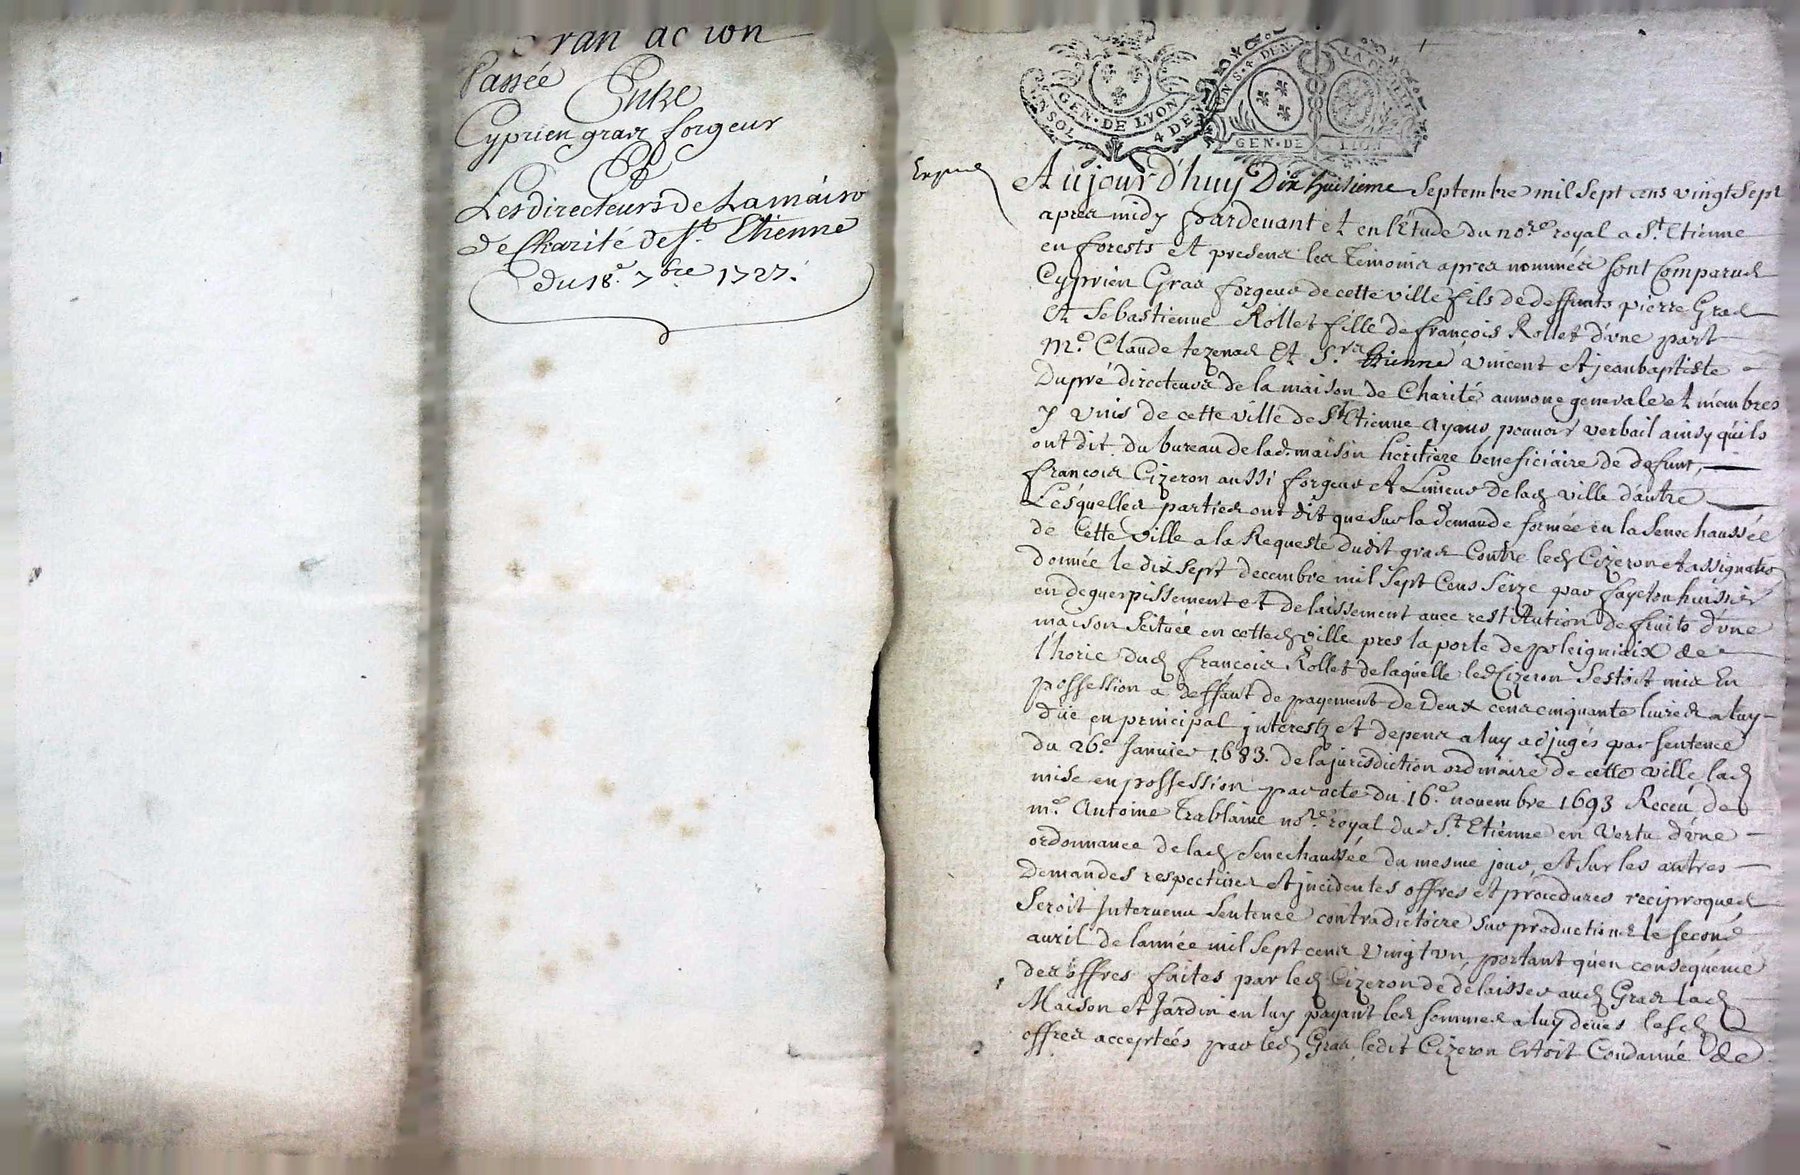 ran ac ion
Passée
Entre
Cyprien gras forgeur
Et
Les directeurs de La maison
de Charité de St. Etienne
du 18e. 7bre 1727.
EN SOL
GEN · DE LYON
4 DEN
GEN · DE LION
Aujourd'huy Dix huitieme Septembre mil sept cens vingt sept
apres midy pardevant et en l'Etude du nore. royal a St. Etienne
en forests et presens les temoins apres nommés sont Comparus
Cyprien Gras forgeur de cette ville fils de deffunts pierre Gras
et Sebastienne Rollet fille de françois Rollet d'une part
Me. Claude tezenas Et Srs. Etienne vincent et jean baptiste
Dupré directeurs de la maison de Charité aumone generale et membres
y unis de cette ville de St Etienne ayans pouvoir verbail ainsy quils
ont dit du bureau de lad. maison heritiere beneficiaire de defunt
françois Cizeron aussi forgeur et Limeur de lad ville d'autre
Lesquelles parties ont dit que sur la demande formée en la Senechaussée
de Cette ville a la Requeste dudit gras Contre led Cizeron et assignatio
donnée le dix sept decembre mil sept Cens Seize par fayeton huissier
en deguerpissement et delaissement avec restitution de fruits d'une
maison scituée en cetted ville pres la porte de poleigniaix de
l'horie dud françois Rollet de laquelle led Cizeron s'estoit mis En
possession a deffaut de payement de deux cens cinquante livres a luy
düe en principal interests et depens a luy adjugés par sentence
du 26e. Janvier 1683. de la jurisdiction ordinaire de cette ville lad
mise en possession par acte du 16e. novembre 1693 Receu de
me. Antoine Trablaine nore. royal dud St. Etienne en vertu d'une
ordonnance de lad Senechaussée du mesme jour, et sur les autres
demandes respectives et incidentes offres et procedures reciproques
seroit Intervenu sentence contradictoire sur productions le second
avril de lannée mil sept cens vingt un, portant qu'en consequence
des offres faites par led Cizeron de delaisser aud Gras lad
Maison et Jardin en luy payant les sommes a luy deües lesd
offres acceptées par led Gras ledit Cizeron Estoit Condamné de